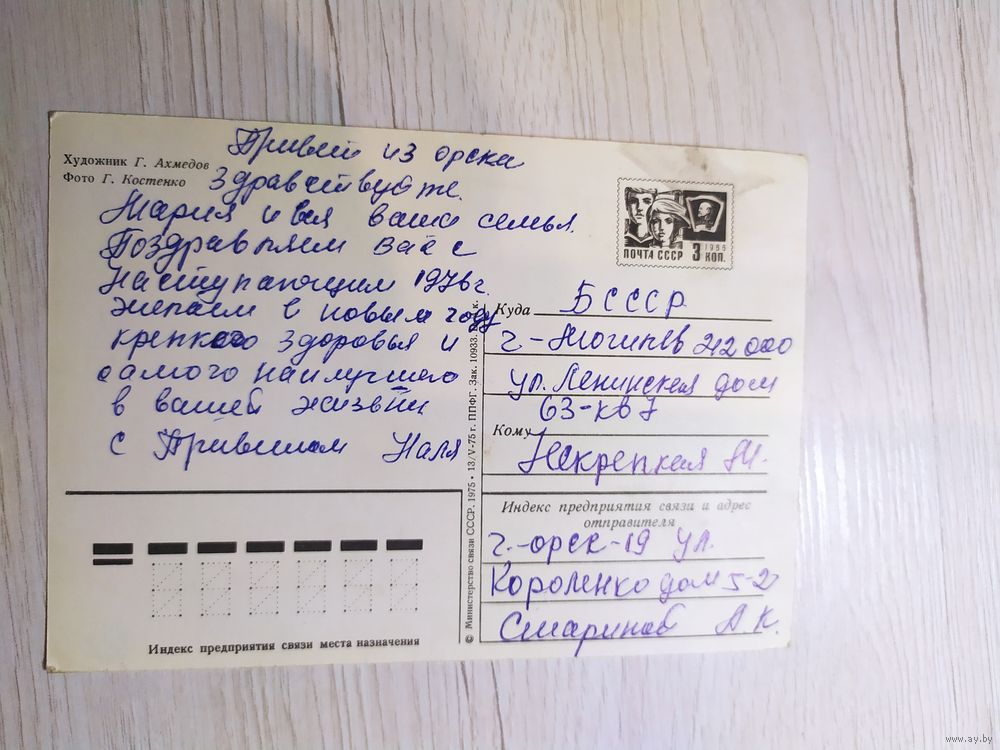 Художник Г. Ахмедов
Фото Г. Костенко
Привет из орска
Здравствуйте
Мария и вся ваша семья.
Поздравляем вас с
Наступающим 1976г.
желаем в новым году
крепкого здоровья и
самого наилучшего
в вашей жизни
с Приветом Наля
ПОЧТА СССР 3 КОП.
1966
Куда БСССР
г-Могилев 212000
ул. Ленинская дом
63-кв 7
Кому Некрепкая М.
Индекс предприятия связи и адрес
отправителя
г.-орск-19 ул.
Короленко дом 5-2
Смаринов А.К.
© Министерство связи СССР. 1975 • 13/V-75 г. ППФГ. Зак. 10933. к.
Индекс предприятия связи места назначения
www.ay.by